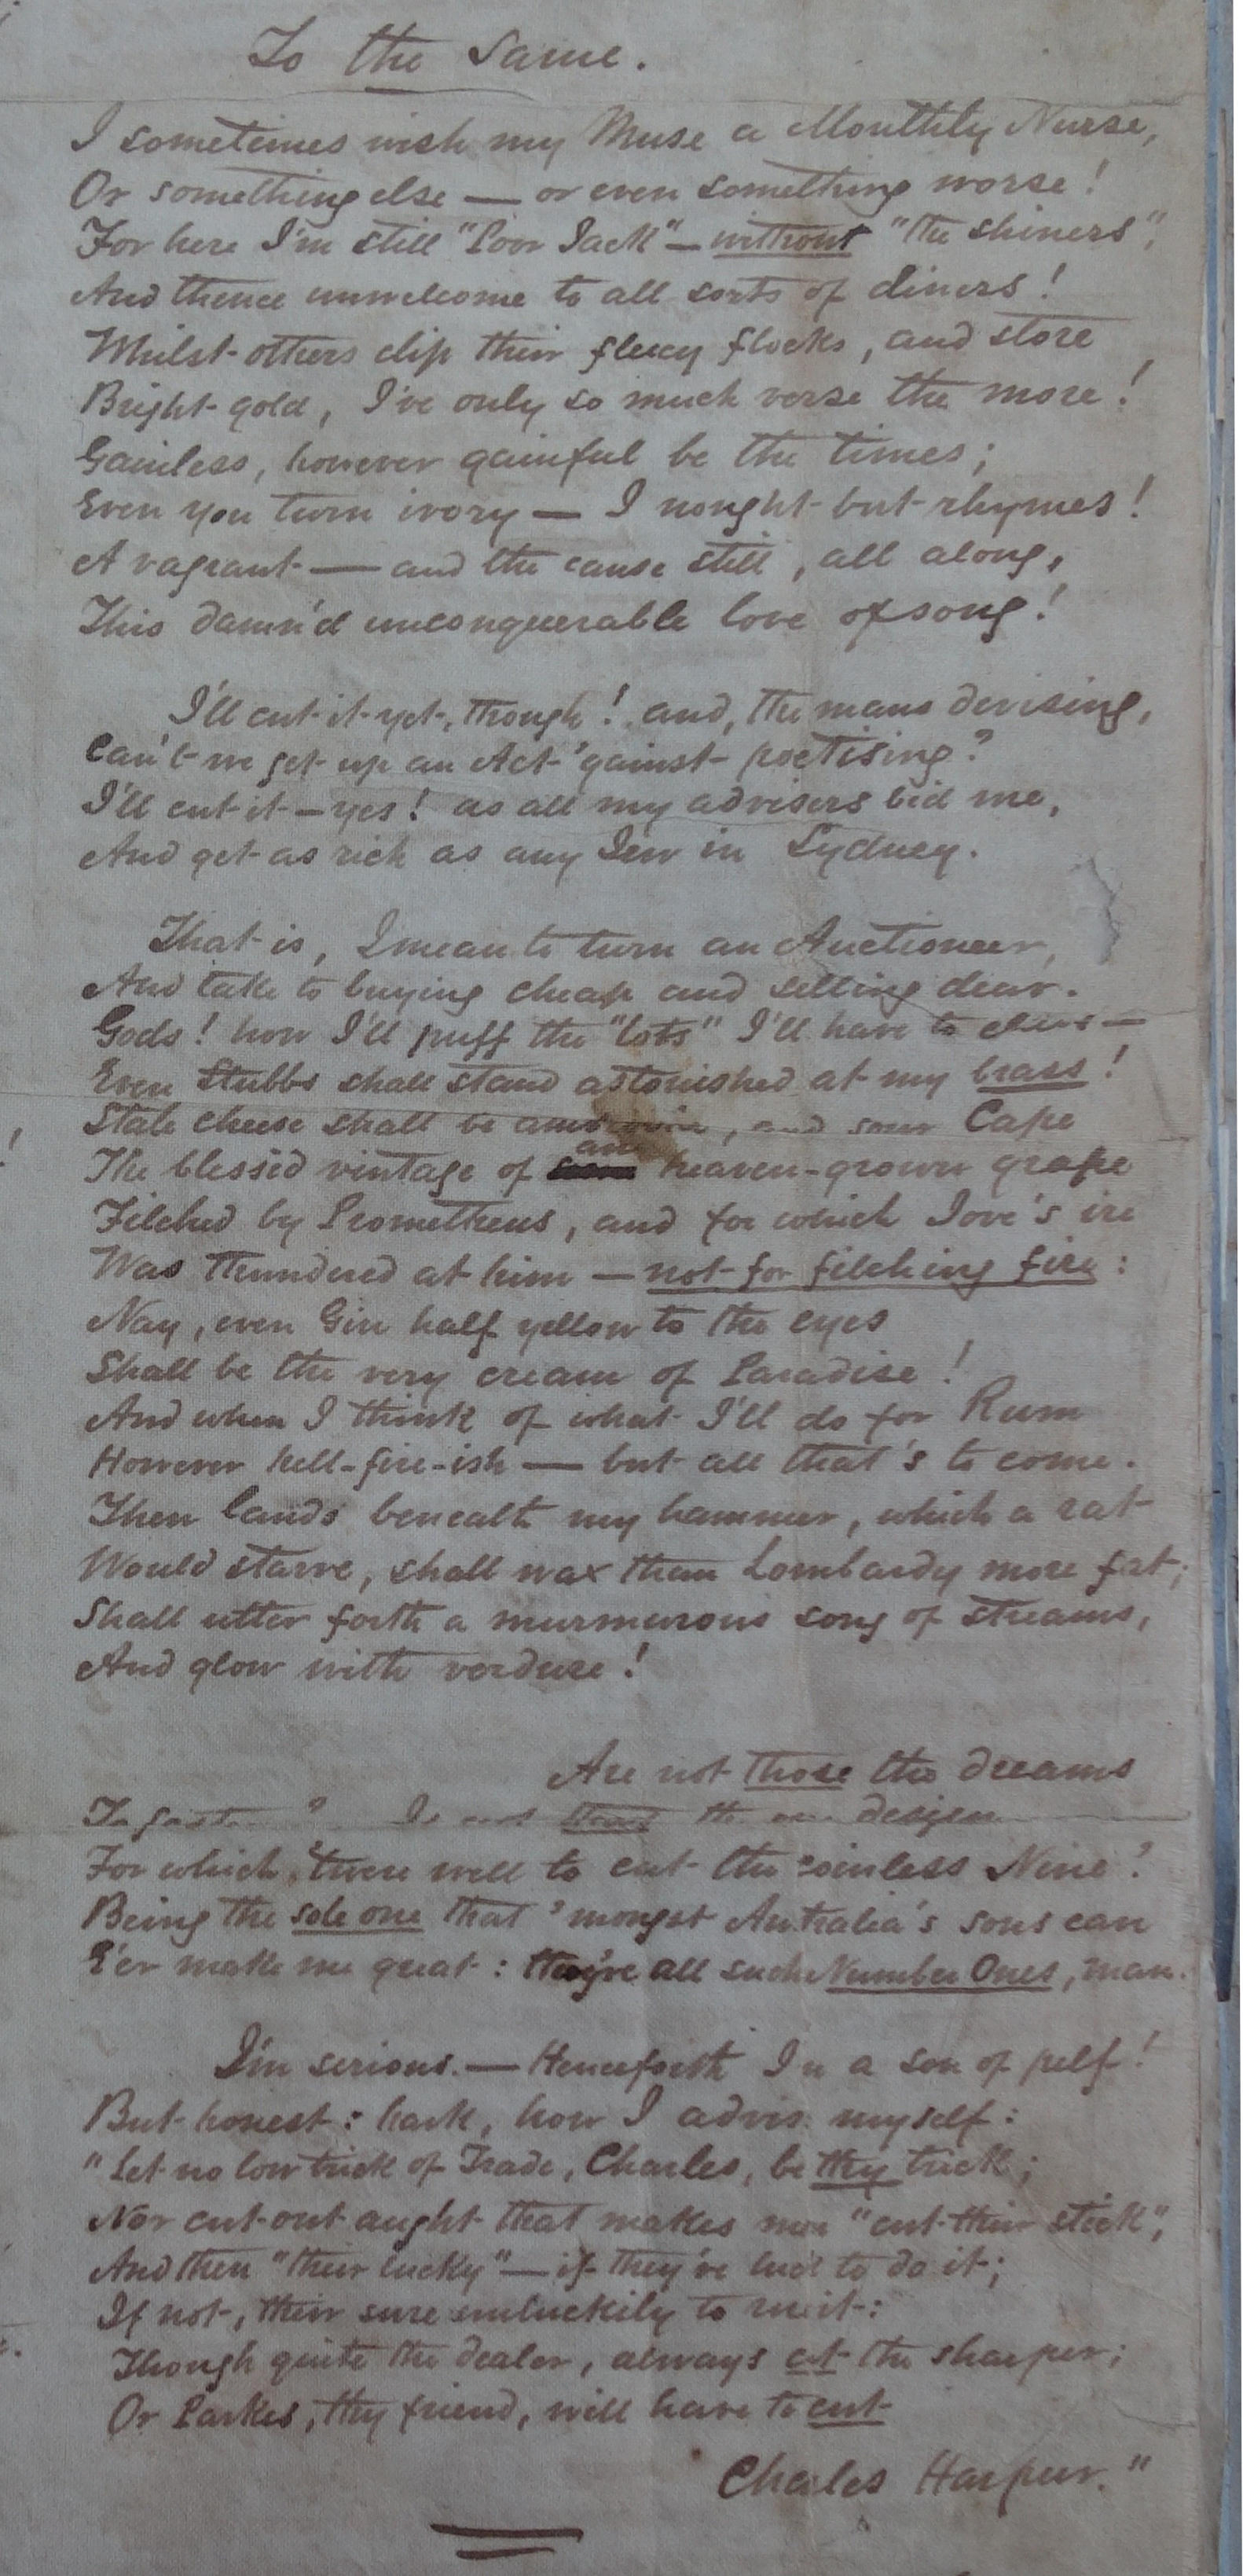 To the Same.
I sometimes wish my Muse a Monthly Nurse,
Or something else — or even something worse!
For here I'm still "Poor Jack" — without "the shiners",
And thence unwelcome to all sorts of diners!
Whilst others clip their fleecy flocks, and store
Bright gold, I've only so much verse the more!
Gainless, however gainful be the times;
Even you turn ivory — I nought but rhymes!
A vagrant — and the cause still, all along,
This damn'd unconquerable love of song!
I'll cut it yet, though! and, the means devising,
Can't we get up an Act 'gainst poetising?
I'll cut it — yes! as all my advisers bid me,
And get as rich as any Jew in Sydney.
That is, I mean to turn an Auctioneer,
And take to buying cheap and selling dear.
Gods! how I'll puff the "lots" I'll have to class —
Even Stubbs shall stand astonished at my brass!
Stale cheese shall be , and sour Cape
The blessed vintage of an heaven-grown grape
Filched by Prometheus, and for which Jove's ire
Was thundered at him — not for filching fire:
Nay, even Gin half yellow to the eyes
Shall be the very cream of Paradise!
And when I think of what I'll do for Rum
However hell-fire-ish — but all that's to come.
Then lands beneath my hammer, which a rat
Would starve, shall wax than Lombardy more fat;
Shall utter forth a murmurous song of streams,
And glow with verdure!
Are not those the dreams
? Is not the design
For which 'twere well to cut the coinless Nine?
Being the sole one that 'mongst Australia's sons can
E'er make me great: they're all such Number Ones, man.
I'm serious. — Henceforth I'm a son of pelf!
But honest: hark, how I advise myself:
"Let no low trick of Trade, Charles, be thy trick;
Nor cut out aught that makes men "cut their stick",
And then "their lucky" — if they've luck to do it;
If not, then sure unluckily to rue it:
Though quite the dealer, always cut the sharper;
Or Parkes, thy friend, will have to cut
Charles Harpur."